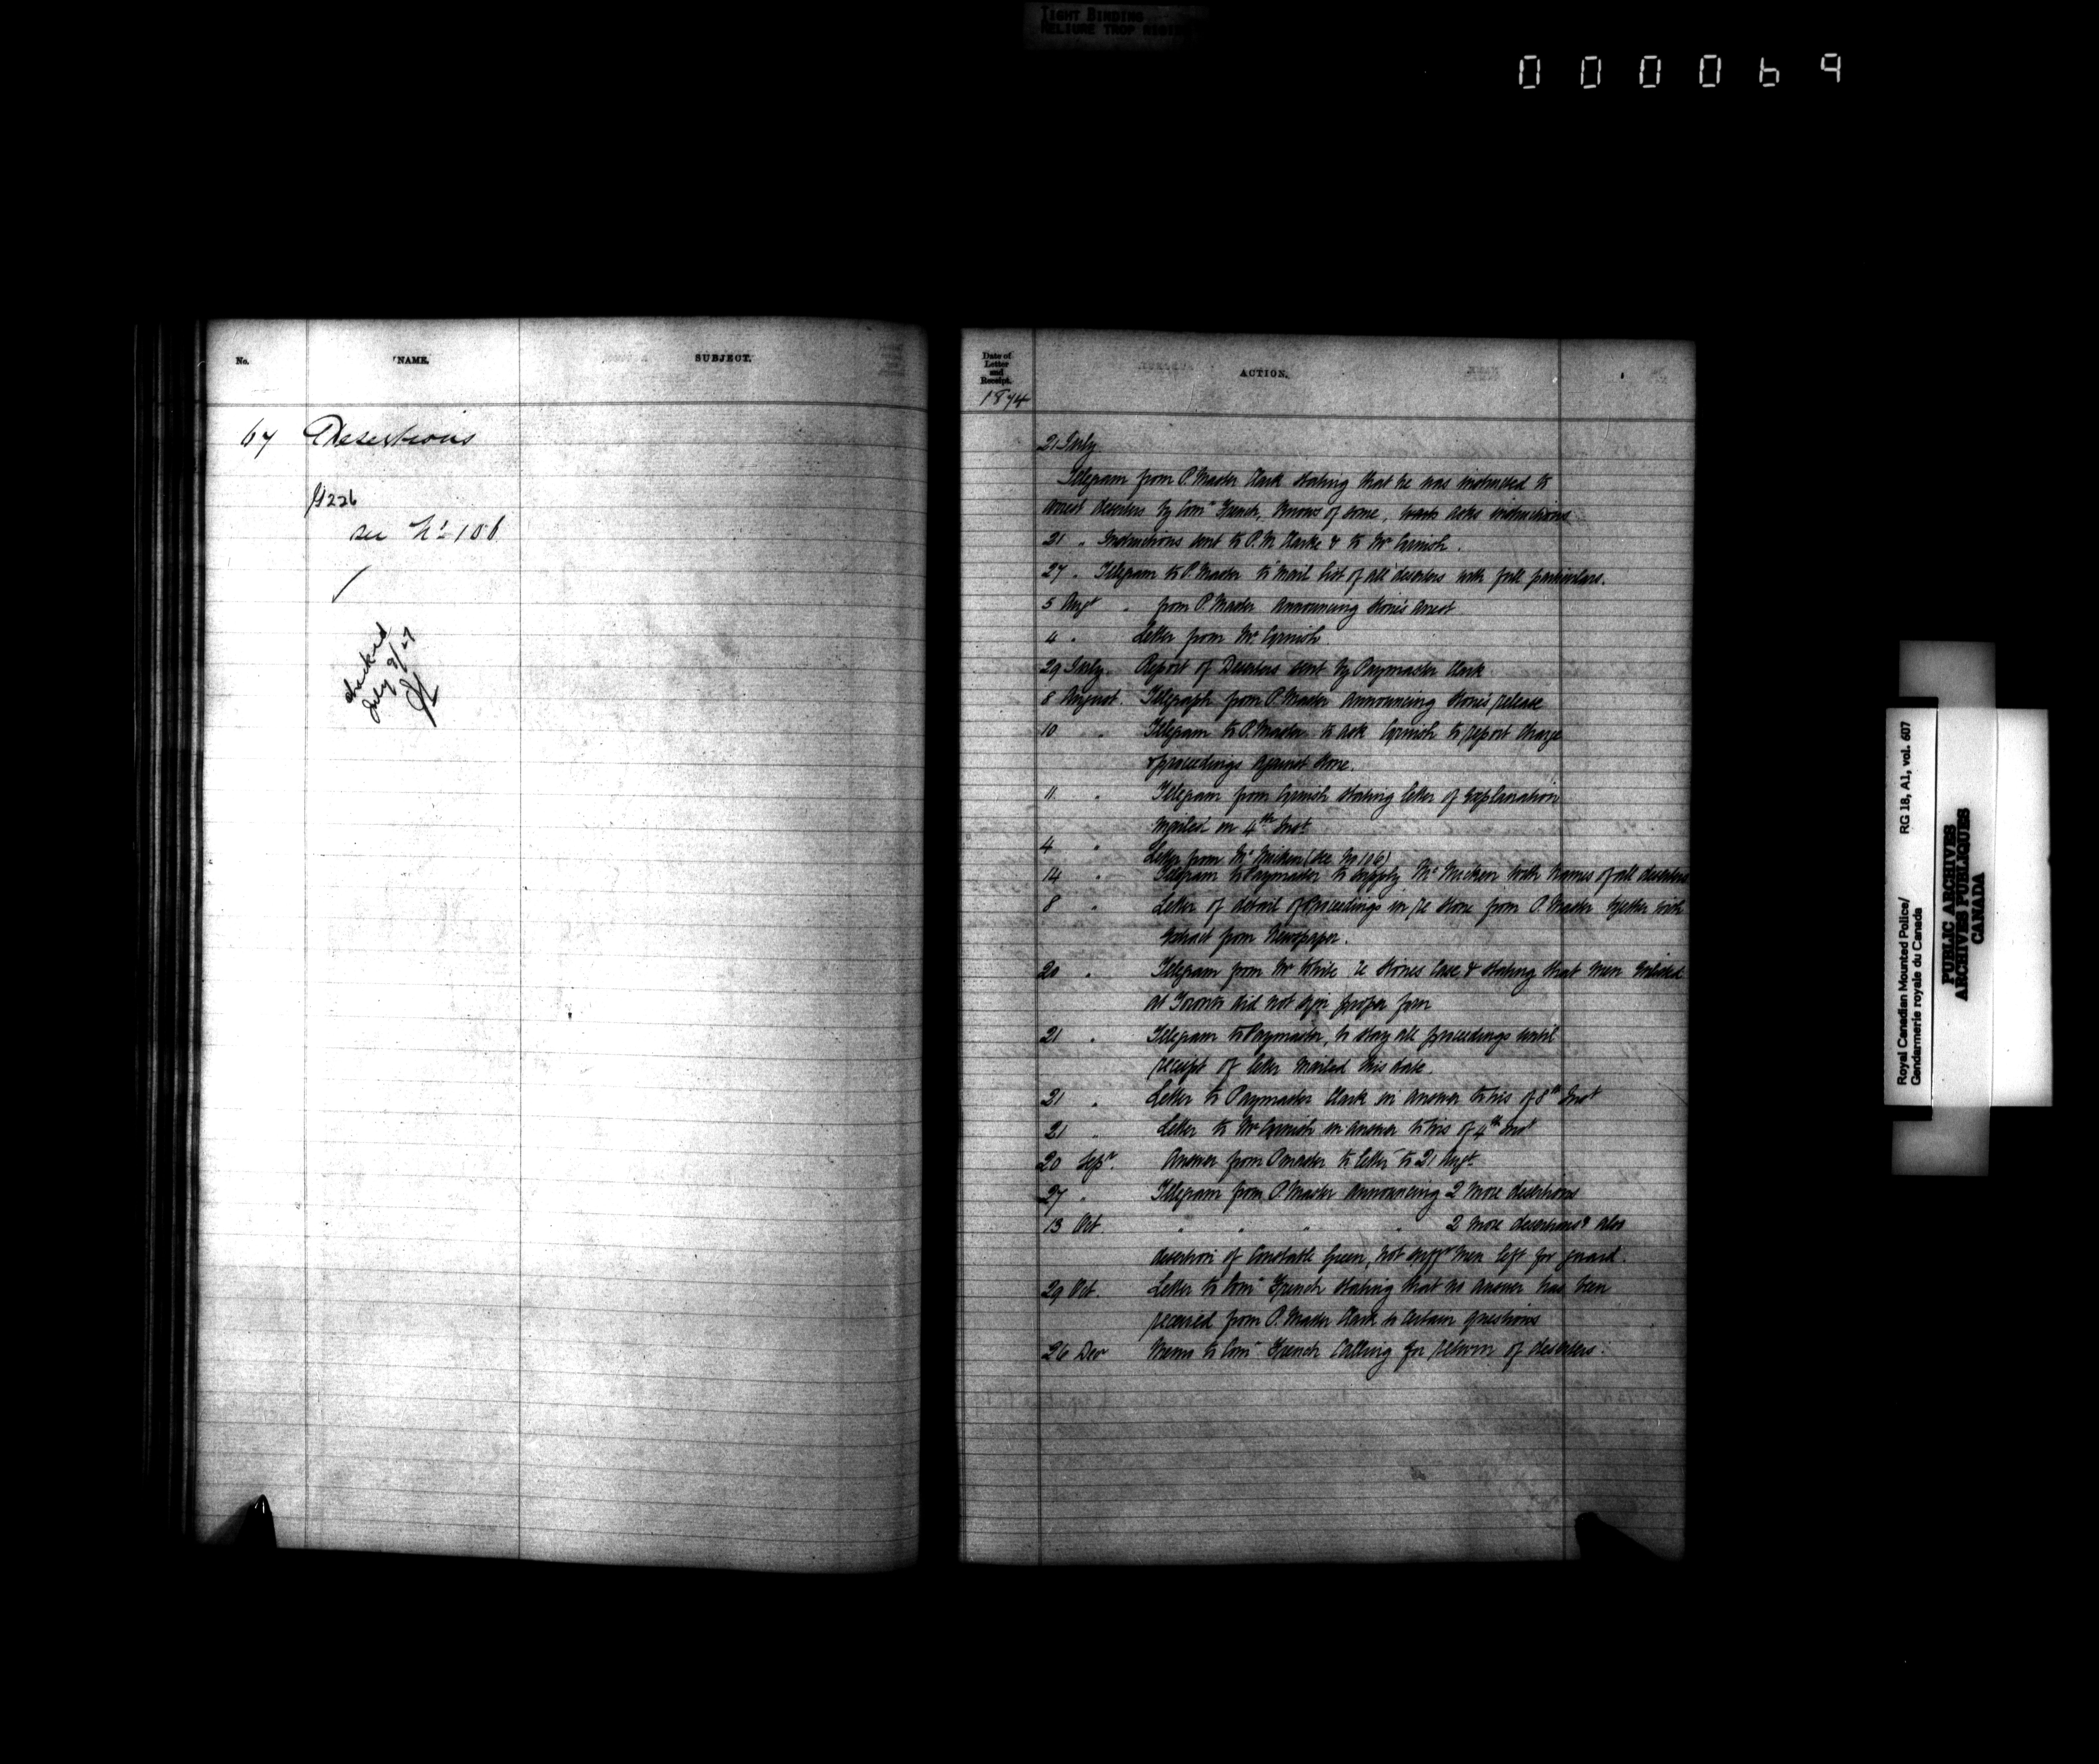 TIGHT BINDING
RELIURE TROP RIGIDE
000069
No. NAME. SUBJECT.
67 Desertions
226
see No 106
checked
July 9/27
Date of
Letter
and
Receipt.
ACTION.
1874
21 July
Telegram from P. Master Clark stating that he was instructed to
arrest deserters by Comr French, knows of some, asks instructions
21 " Instructions sent to P.M. Clarke & to Mr Cornish.
27 " Telegram to P. Master to mail list of all deserters with full particulars.
5 Augt " from P. Master announcing Stone's arrest
4 " Letter from Mr Cornish
29 July. Report of Deserters sent by Paymaster Clark
8 August. Telegraph from P. Master announcing Stone's release
10 " Telegram to P. Master to ask Cornish to report charge
& proceedings against Stone.
11 " Telegram from Cornish stating letter of explanation
mailed on 4th Inst
4 " Letter from Mc Micken (see No 106)
14 " Telegram to Paymaster to supply Mc Micken with names of all deserters
8 " Letter of detail of Proceedings in re Stone from P. Master together with
extract from Newspaper.
20 " Telegram from Mr White re Stones Case & stating that men enlisted
at Toronto did not sign proper form
21 " Telegram to Paymaster, to stay all proceedings until
receipt of letter mailed this date.
21 " Letter to Paymaster Clark in answer to his of 8th Inst
21 " Letter to Mr Cornish in answer to his of 4th Inst
20 Sepr. Answer from P master to letter to 21 Augt.
27 " Telegram from P. Master announcing 2 more desertions
13 Oct. " " " " 2 more desertions & also
desertion of Constable Green, not sufft men left for guard.
29 Oct. Letter to Comr French stating that no answer has been
received from P. Master Clark to certain questions
26 Decr Memo to Comr French calling for return of deserters.
Royal Canadian Mounted Police/
Gendarmerie royale du Canada
RG 18, A1, vol. 607
PUBLIC ARCHIVES
ARCHIVES PUBLIQUES
CANADA